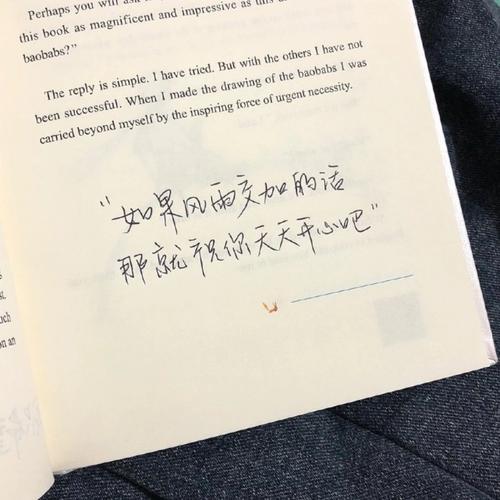 Perhaps you will
this book as magnificent and impressive as this
baobabs?"
The reply is simple. I have tried. But with the others I have not
been successful. When I made the drawing of the baobabs I was
carried beyond myself by the inspiring force of urgent necessity.
"如果风雨交加的话
那就祝你天天开心吧"
on an